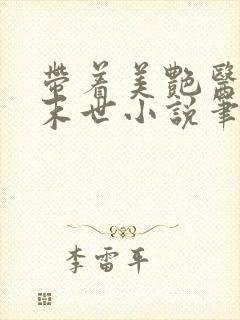 带着美艷醫
末世小説筆
李雷平